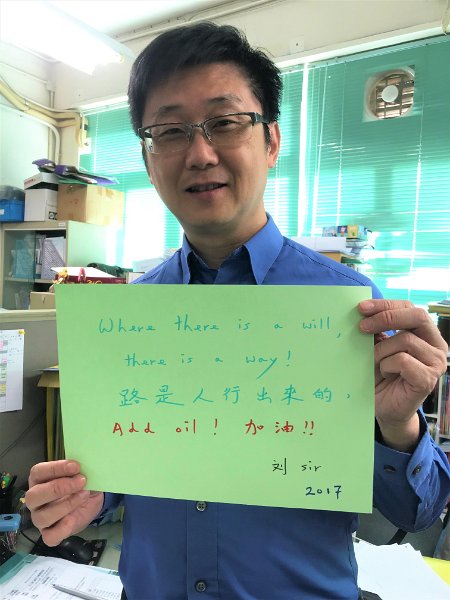 Where there is a will,
there is a way!
路是人行出來的,
Add oil! 加油!!
刘 sir
2017